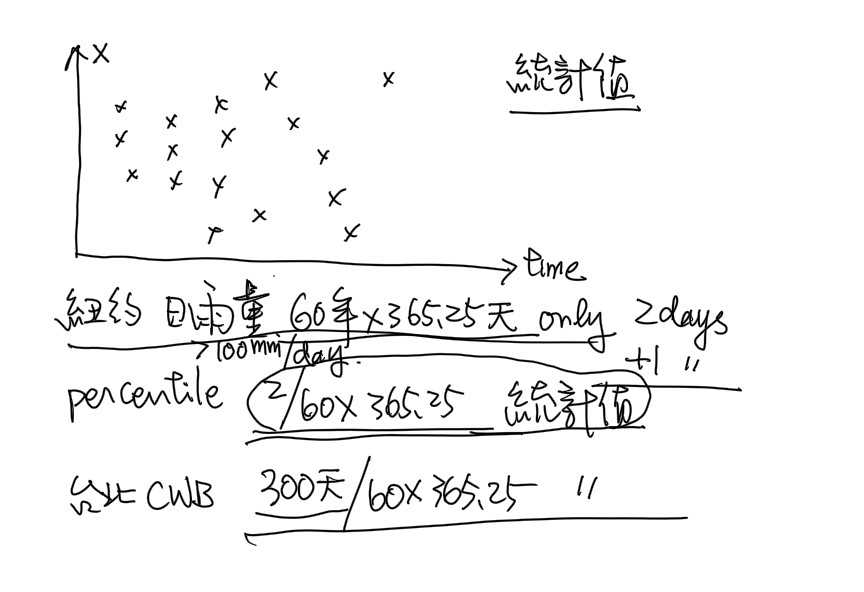 x
統計值
time
紐約 日雨量 60年x365.25天 only 2days
>100mm/day. +1 〃
percentile 2/60x365.25 統計值
台北 CWB 300天/60x365.25 〃